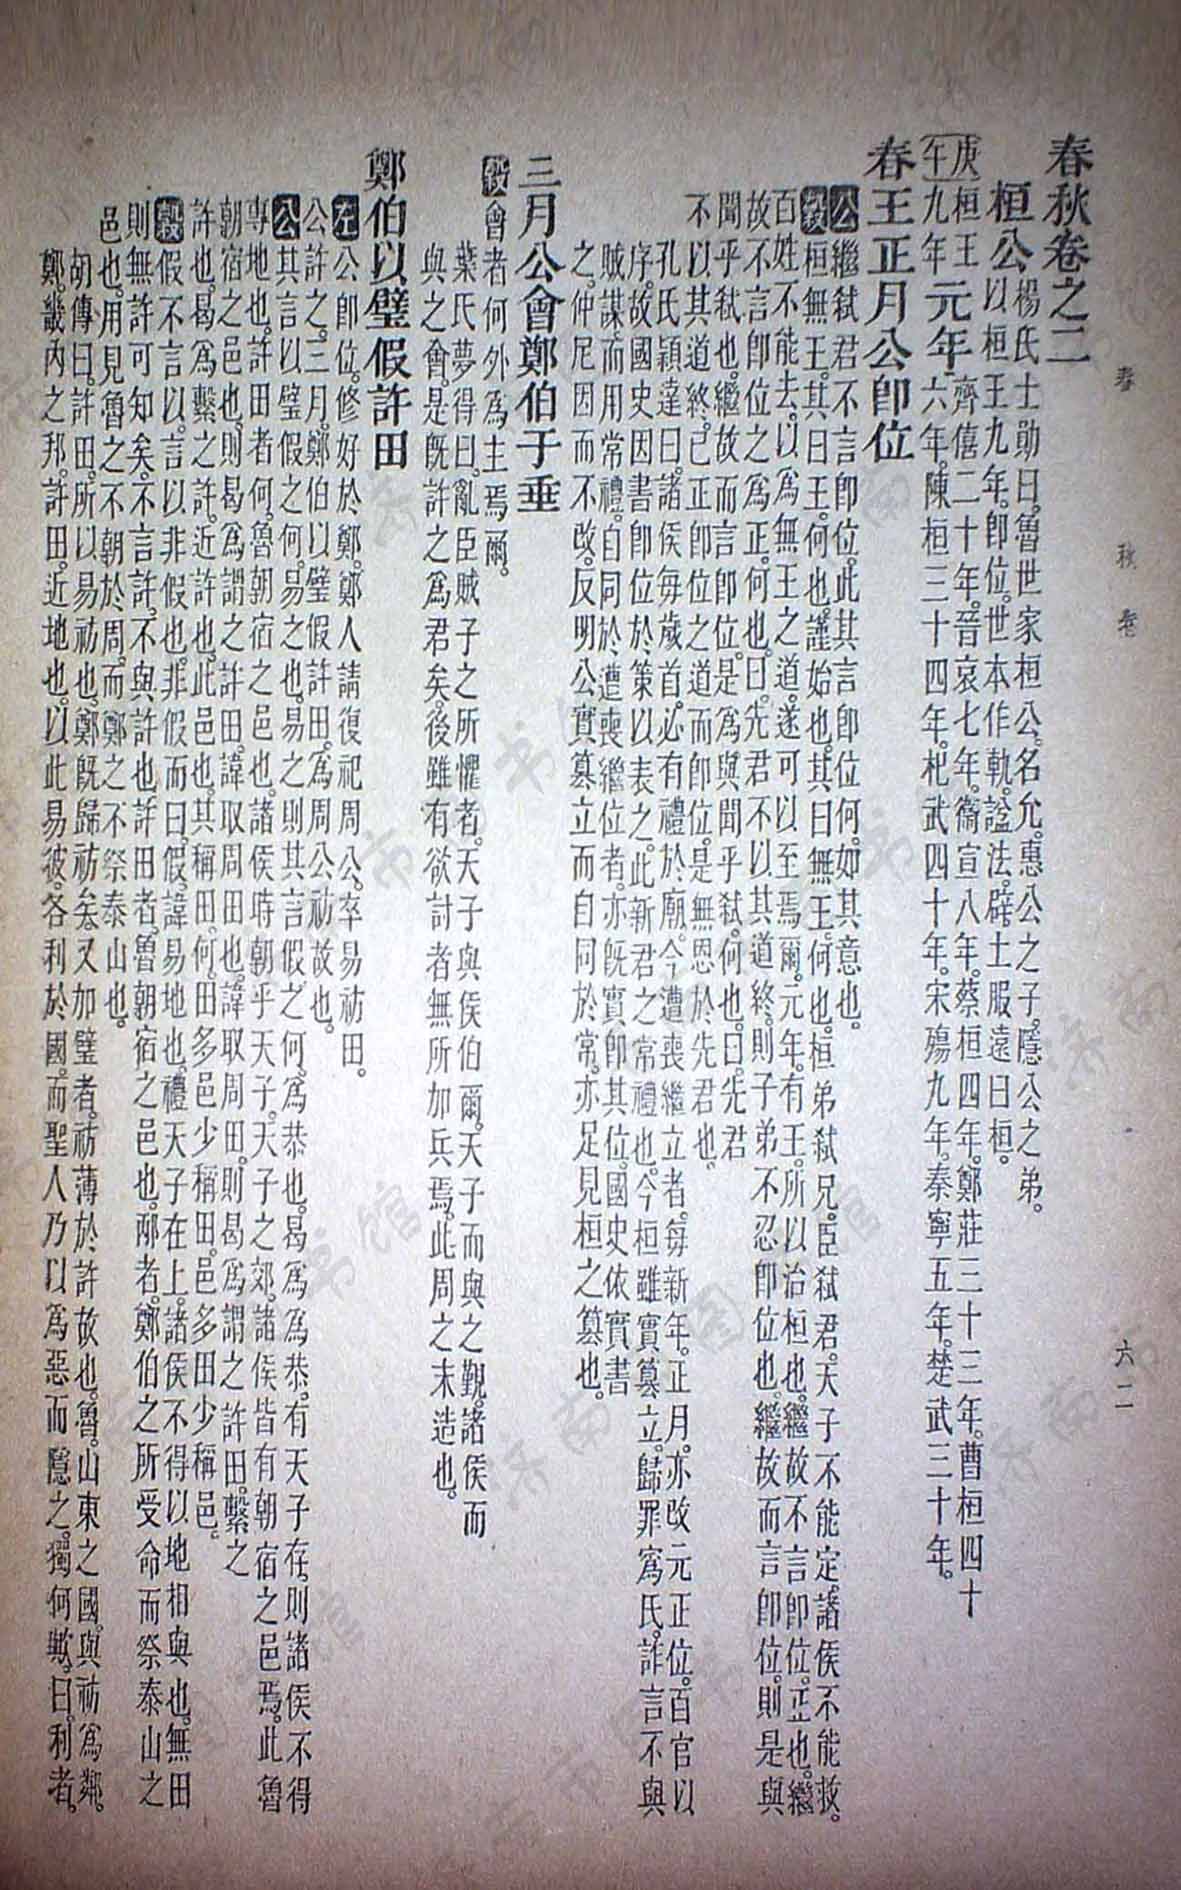 春秋卷 六二
春秋卷之二
桓公楊氏士勛曰。魯世家桓公。名允。惠公之子。隱公之弟。
以桓王九年。即位。世本作軌。諡法。辟土服遠曰桓。
庚午桓王九年元年齊僖二十年。晉哀七年。衞宣八年。蔡桓四年。鄭莊三十三年。曹桓四十
六年。陳桓三十四年。杞武四十年。宋殤九年。秦寧五年。楚武三十年。
春王正月公卽位
公繼弑君不言卽位。此其言卽位何。如其意也。
穀桓無王。其曰王。何也。謹始也。其曰無王。何也。桓弟弑兄。臣弑君。天子不能定。諸侯不能救。
百姓不能去。以爲無王之道。遂可以至焉爾。元年。有王。所以治桓也。繼故不言卽位。正也。繼
故不言卽位之爲正。何也。曰。先君不以其道終。則子弟不忍卽位也。繼故而言卽位。則是與
聞乎弑也。繼故而言卽位。是爲與聞乎弑。何也。曰。先君
不以其道終。己正卽位之道而卽位。是無恩於先君也。
孔氏穎達曰。諸侯每歲首。必有禮於廟。今遭喪繼立者。每新年。正月。亦改元正位。百官以
序。故國史因書卽位於策以表之。此新君之常禮也。今桓雖實簒立。歸罪寪氏。詐言不與
賊謀。而用常禮。自同於遭喪繼位者。亦旣實卽其位。國史依實書
之。仲尼因而不改。反明公實簒立而自同於常。亦足見桓之簒也。
三月公會鄭伯于垂
穀會者何外爲主焉爾。
葉氏夢得曰。亂臣賊子之所懼者。天子與侯伯爾。天子而與之覲。諸侯而
與之會。是旣許之爲君矣。後雖有欲討者無所加兵焉。此周之末造也。
鄭伯以璧假許田
左公卽位。修好於鄭。鄭人請復祀周公。卒易祊田。
公許之。三月。鄭伯以璧假許田。爲周公祊故也。
公其言以璧假之何。易之也。易之則其言假之何。爲恭也。曷爲爲恭。有天子存。則諸侯不得
專地也。許田者何。魯朝宿之邑也。諸侯時朝乎天子。天子之郊。諸侯皆有朝宿之邑焉。此魯
朝宿之邑也。則曷爲謂之許田。諱取周田也。諱取周田。則曷爲謂之許田。繫之
許也。曷爲繫之許。近許也。此邑也。其稱田。何。田多邑少稱田。邑多田少稱邑。
穀假不言以。言以非假也。非假而曰。假。諱易地也。禮天子在上。諸侯不得以地相與也。無田
則無許可知矣。不言許。不與許也。許田者。魯朝宿之邑也。邴者。鄭伯之所受命而祭泰山之
邑也。用見魯之不朝於周。而鄭之不祭泰山也。
胡傳曰。許田。所以易祊也。鄭旣歸祊矣。又加璧者。祊薄於許故也。魯。山東之國。與祊爲鄰。
鄭。畿內之邦。許田。近地也。以此易彼。各利於國。而聖人乃以爲惡而隱之。獨何歟。曰。利者。